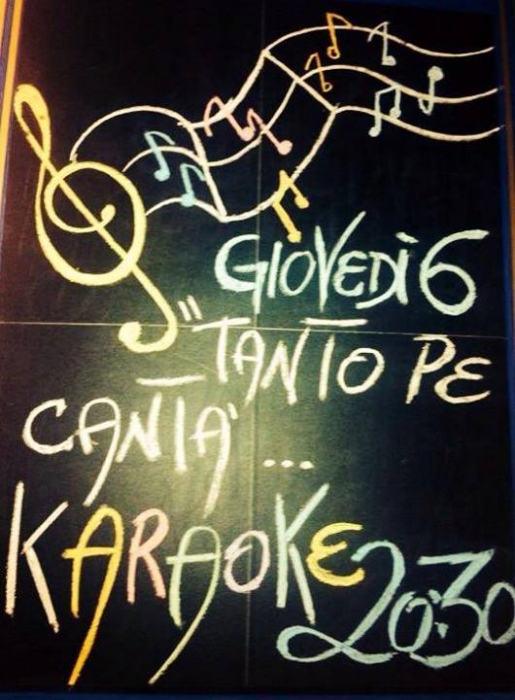 GIOVEDÌ 6
"TANTO PE
CANTA' ...
KARAOKE 20:30